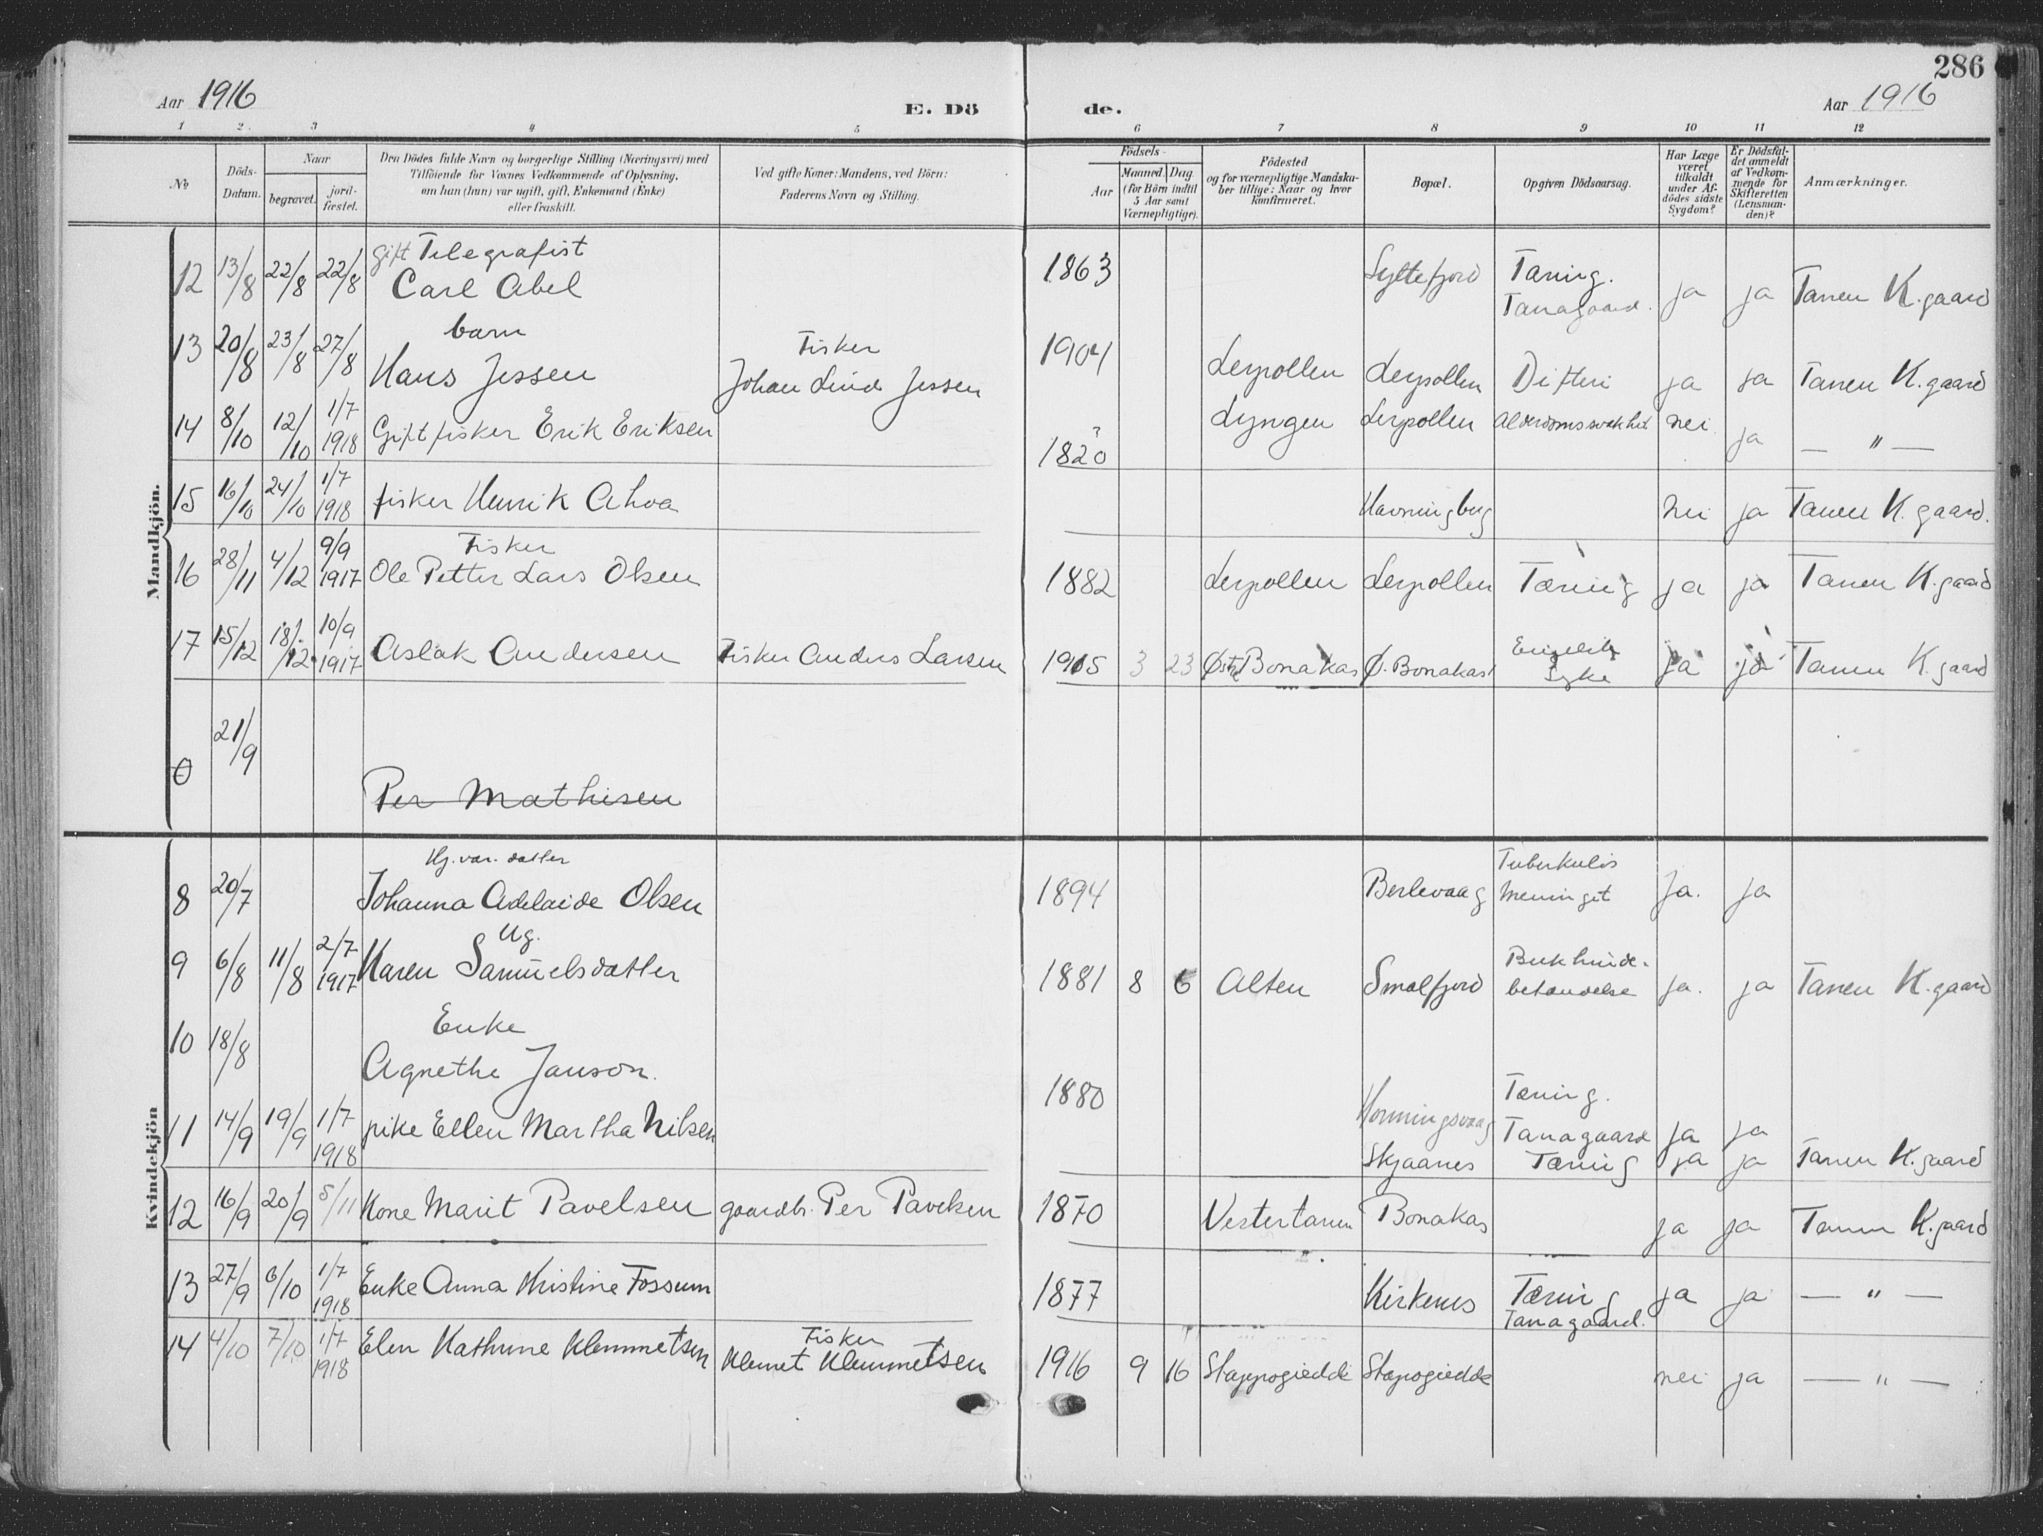 286
Aar 1916
E. Dö de.
Aar 1916
1 2 3 4 5 6 7 8 9 10 11 12
No
Döds-
Datum.
Naar
begravet.
jord-
fæstet.
Den Dödes fulde Navn og borgerlige Stilling (Næringsvei) med
Tilföiende for Voxnes Vedkommende af Oplysning,
om han (hun) var ugift, gift, Enkemand (Enke)
eller fraskilt.
Ved gifte Koner: Mandens, ved Börn:
Faderens Navn og Stilling.
Födsels-
Aar
Maaned. Dag
(for Börn indtil
5 Aar samt
Værnepligtige).
Födested
og for værnepligtige Mandska-
ber tillige: Naar og hvor
konfirmeret.
Bopæl.
Opgiven Dödsaarsag.
Har Læge
været
tilkaldt
under Af-
dödes sidste
Sygdom?
Er Dödsfal-
det anmeldt
af Vedkom-
mende for
Skifteretten
(Lensman-
den)?
Anmærkninger.
Mandkjön.
gift Telegrafist
12 13/8 22/8 22/8 Carl Abel 1863 Syltefjord Tæring. Tanagaard. ja ja Tanen K.gaard
barn
13 20/8 23/8 27/8 Hans Jessen Fisker Johan Lind Jessen 1904 Lerpollen Lerpollen Difteri ja ja Tanen K.gaard
14 8/10 12/10 1/7 1918 Gift fisker Erik Eriksen 1820 ? Lyngen Lerpollen Alderdomssvakhet nei ja — " —
15 16/10 24/10 1/7 1918 fisker Henrik Ahva Havningberg nei ja Tanen K. gaard.
Fisker
16 28/11 4/12 9/9 1917 Ole Petter Lars Olsen 1882 Lerpollen Lerpollen Tæring ja ja Tanen K.gaard
17 15/12 18/12 10/9 1917 Aslak Andersen Fisker Anders Larsen 1915 3 23 Østre Bonakas Ø. Bonakas Engelsk Syke ja ja Tanen K.gaard
0 21/9 Per Mathisen
Kvindekjön
Hj.var. datter
8 20/7 Johanna Adelaide Olsen 1894 Berlevaag Tuberkuløs meningit Ja. ja
Ug.
9 6/8 11/8 2/7 1917 Karen Samuelsdatter 1881 8 6 Alten Smalfjord Bukhinde- betændelse ja. ja Tanen K.gaard
Enke
10 18/8 Agnethe Janson. 1880 Honningsvaag Tæring. Tanagaard ja ja
11 14/9 19/9 1/7 1918 pike Ellen Martha Nilsen Skjaanes Tæring ja ja Tanen K.gaard
12 16/9 20/9 5/11 Kone Marit Pavelsen gaardbr. Per Pavelsen 1870 Vestertanen Bonakas ja ja Tanen K.gaard
13 27/9 6/10 1/7 1918 Enke Anna Kristine Fossum 1877 Kirkenes Tæring Tanagaard. ja ja — " —
14 4/10 7/10 1/7 1918 Elen Kathrine Klemmetsen Fisker Klemet Klemmetsen 1916 9 16 Stappogiedde Stapogiedde nei ja — " —